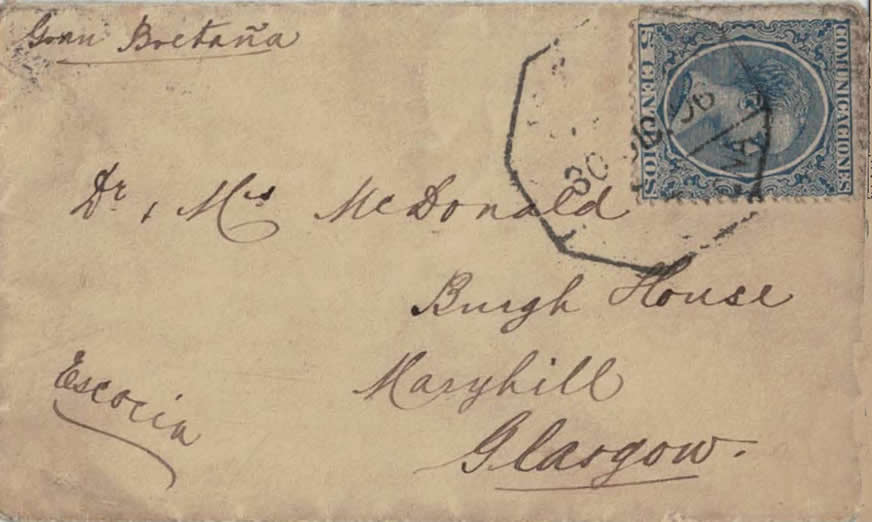 Gran Bretaña
COMUNICACIONES
5 CENTIMOS
30 DIC 96
Dr. , Mrs McDonald
Burgh House
Maryhill
Glasgow.
Escocia